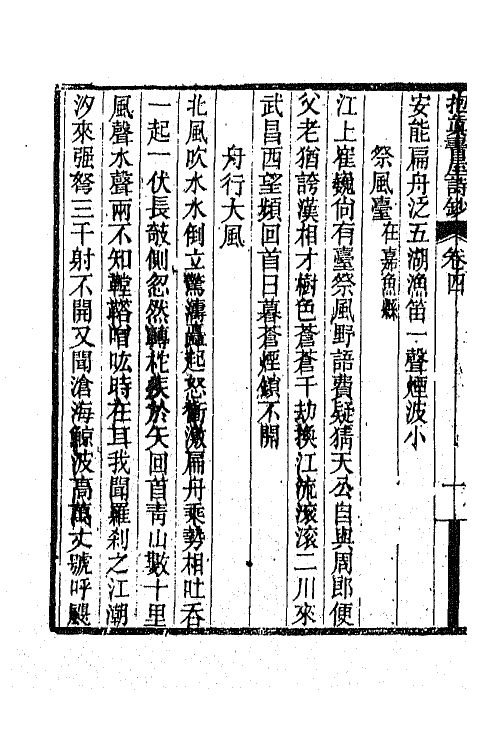 抱眞書屋詩鈔 卷四
安能扁舟泛五湖漁笛一聲煙波小
祭風臺在嘉魚縣
江上崔巍尙有臺祭風野語費疑猜天公自與周郎便
父老猶誇漢相才樹色蒼蒼千劫換江流滾滾二川來
武昌西望頻回首日暮蒼煙鎖不開
舟行大風
北風吹水水倒立驚濤矗起怒衝激扁舟乘勢相吐吞
一起一伏長欹側忽然轉柁疾於矢回首靑山數十里
風聲水聲兩不知鞺鞳喧呟時在耳我聞羅刹之江潮
汐來强弩三千射不開又聞滄海鯨波高萬丈號呼颶